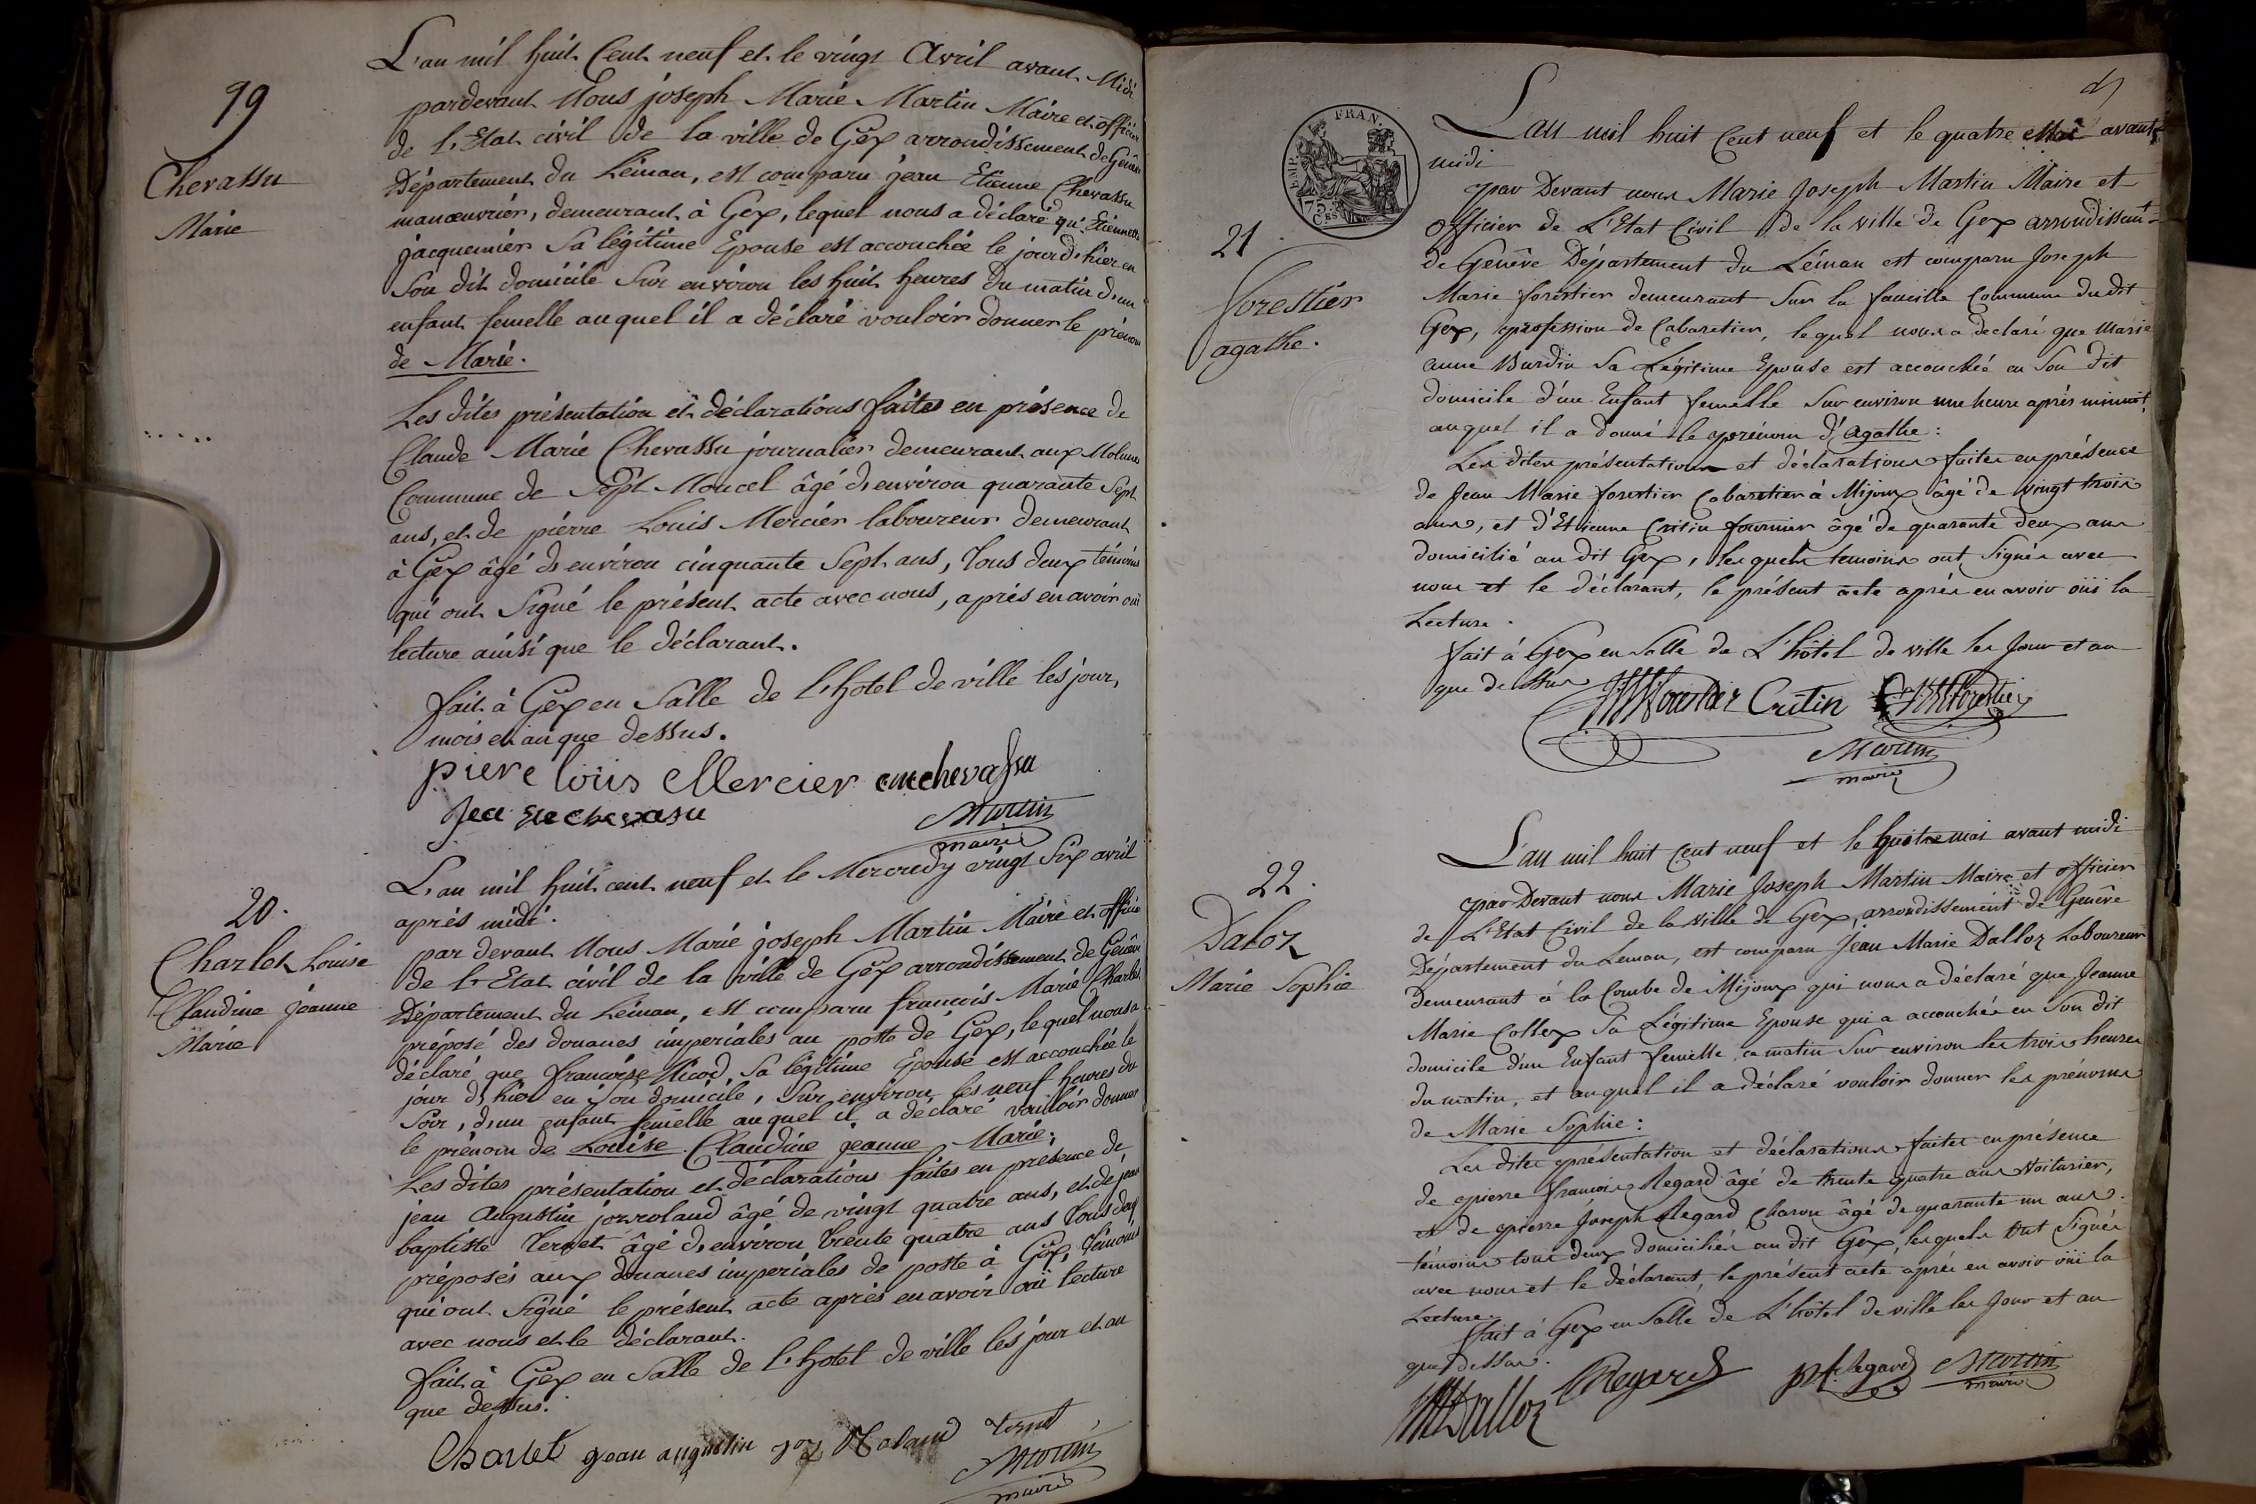 19
Chevassu
Marie
L'an mil huit Cent neuf et le vingt Avril avant Midi
pardevant Nous joseph Marie Martin Maire et officier
de l'Etat civil de la ville de Gex arrondissement de Genève
Département du Léman, est comparu jean Etienne Chevassu
manœuvrier, demeurant à Gex, lequel nous a déclaré qu'Etiennette
jacquemier Sa légitime Epouse est accouchée le jour d'hier en
Son dit domicile Sur environ les huit heures du matin d'un
enfant femelle auquel il a déclaré vouloir donner le prénom
de Marie.
Les dites présentation et déclarations faites en présence de
Claude Marie Chevassu journalier demeurant aux Molunes
Commune de Sept Moncel âgé d'environ quarante Sept
ans, et de pierre Louis Mercier laboureur demeurant
à Gex âgé d'environ cinquante Sept ans, tous deux témoins
qui ont Signé le présent acte avec nous, après en avoir oui
lecture ainsi que le déclarant.
fait à Gex en Salle de l'hotel de ville les jour,
mois et an que dessus.
piere loüis Mercier cmchevassu
Jea Ete chevasu
Martin
maire
20.
Charlet Louise
Claudine jeanne
Marie
L'an mil huit cent neuf et le Mercredy vingt Six avril
après midi.
par devant Nous Marie joseph Martin Maire et officier
de l'Etat civil de la ville de Gex arrondissement de Genève
Département du Léman, est comparu françois Marie Charlet
préposé des douanes impériales au poste de Gex, lequel nous a
déclaré que françoise Nicod Sa légitime Epouse est accouchée le
jour d'hier en Son domicile, Sur environ les neuf heures du
Soir, d'un enfant femelle auquel il a déclaré vouloir donner
le prénom de Louise Claudine jeanne Marie.
Les dites présentation et déclarations faites en présence de
jean Augustin âgé de vingt quatre ans, et de jean
baptiste Vernet âgé d'environ trente quatre ans tous deux
préposés aux douanes impériales de poste à Gex, témoins
qui ont Signé le présent acte après en avoir oui lecture
avec nous et le déclarant.
fait à Gex en Salle de l'hotel de ville les jour et an
que dessus.
Charlet jean augustin
Martin
maire
EMP. FRAN.
75.
C.es
21.
forestier
agathe.
L'an mil huit Cent neuf et le quatre Mai avant
midi
par Devant nous Marie Joseph Martin Maire et
officier de L'Etat Civil de la ville de Gex arrondissemt
de Genêve Département du Léman est comparu Joseph
Marie forestier demeurant Sur la faucille Commune du dit
Gex, profession de Cabaretier, lequel nous a declaré que Marie
anne Burdin Sa Légitime Epouse est accouchée en Son dit
domicile d'un Enfant femelle Sur environ une heure après minuit,
auquel il a donné le prénom d'Agathe:
Les dites présentations et déclarations faites en présence
de Jean Marie forestier Cabaretier à Mijoux âgé de vingt trois
ans, et d'Etienne Critin fournier âgé de quarante deux ans
domicilié au dit Gex, lesquels temoins ont Signés avec
nous et le déclarant, le présent acte après en avoir oüi la
Lecture.
fait à Gex en Salle de L'hôtel de ville les Jour et an
que dessus
Critin JM forestier
Martin
maire
22.
Daloz
Marie Sophie
L'an mil huit Cent neuf et le huit mai avant midi
par Devant nous Marie Joseph Martin Maire et officier
de L'Etat Civil de la ville de Gex, arrondissement de Genêve
Département du Leman, est comparu Jean Marie Dalloz Laboureur
demeurant à la Combe de Mijoux qui nous a déclaré que Jeanne
Marie Collex Sa Légitime Epouse qui a accouchée en Son dit
domicile d'un Enfant femelle ce matin Sur environ les trois heures
du matin, et auquel il a déclaré vouloir donner les prénoms
de Marie Sophie:
Les dites présentation et déclarations faites en présence
de pierre françois Regard âgé de trente quatre ans Voiturier,
et de pierre Joseph Regard Charon âgé de quarante un ans.
témoins tous deux domiciliés au dit Gex, lesquels ont Signés
avec nous et le déclarant, le présent acte après en avoir oüi la
Lecture.
fait à Gex en Salle de L'hôtel de ville les Jour et an
que dessus.
JM Dalloz Regard pf Regard Martin
maire